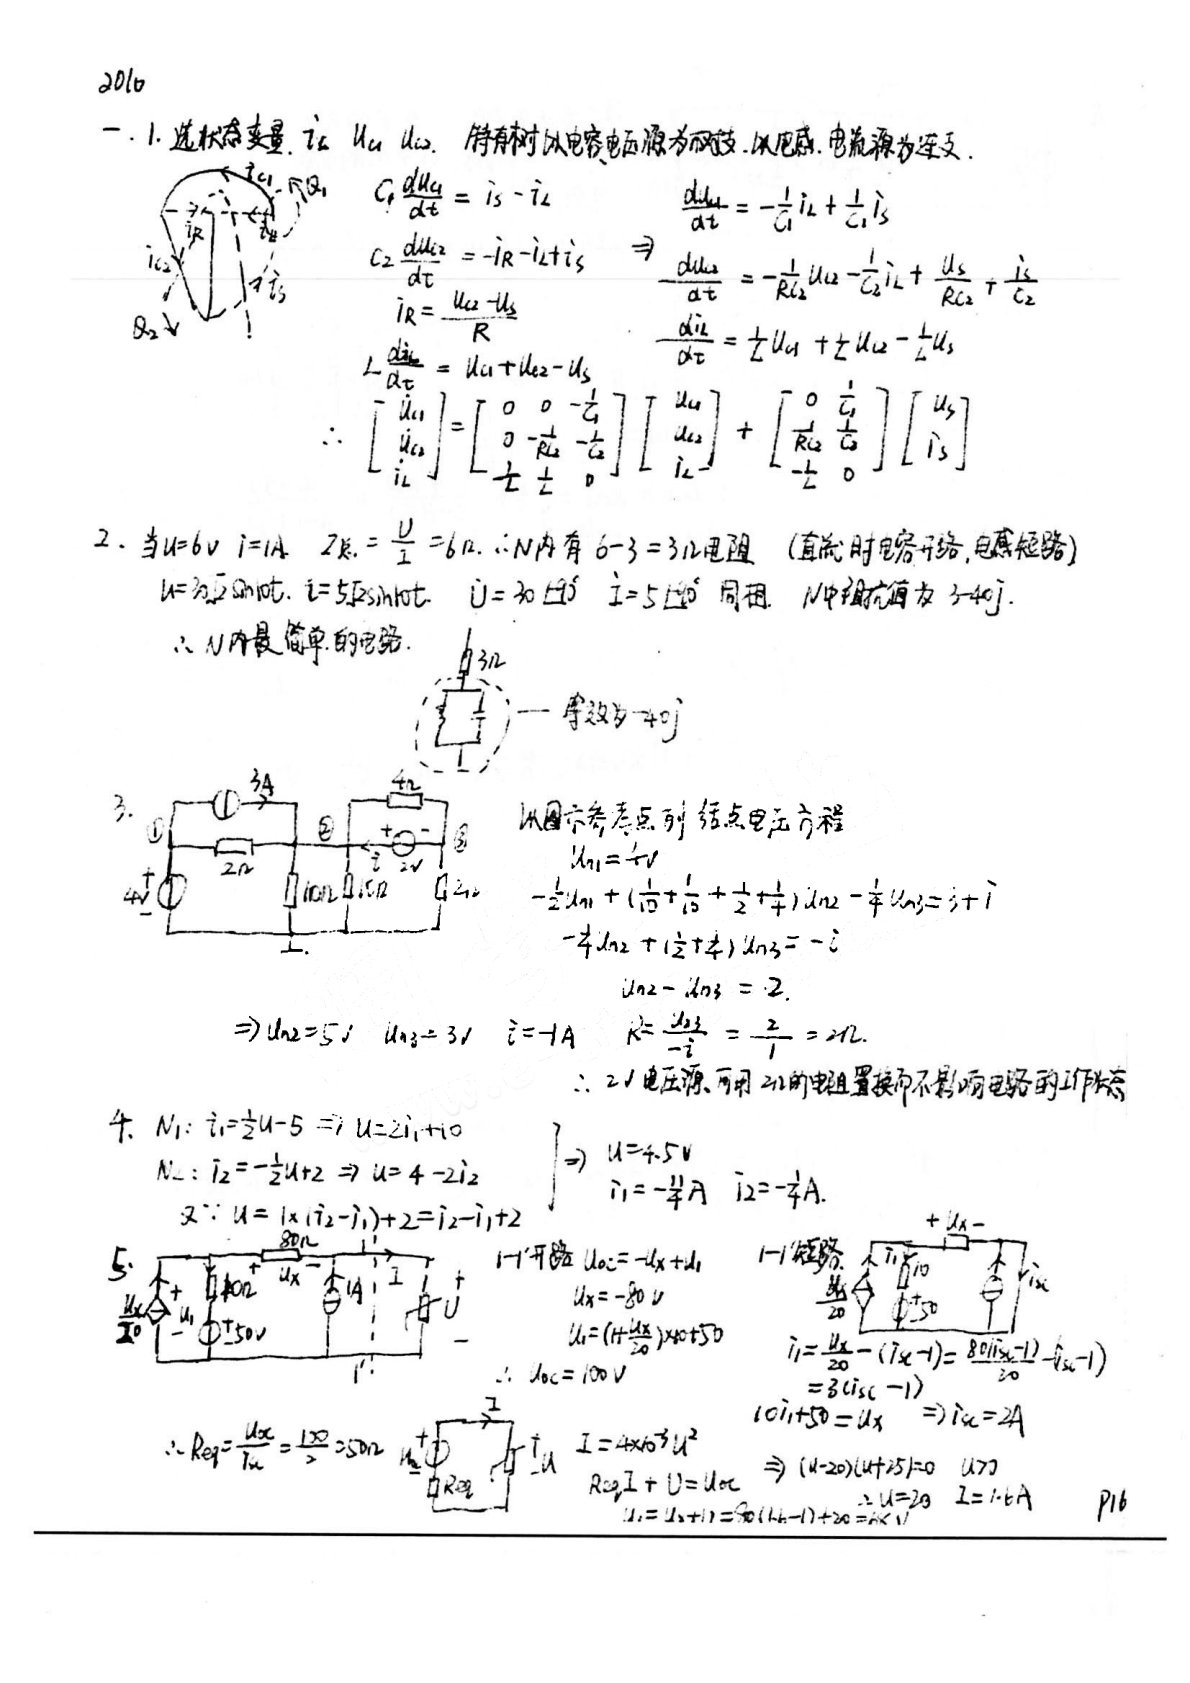 2016
一. 1. 选状态变量. iL uC1 uC2. 特有树以电容、电压源为树支. 以电感. 电流源为连支.
iC1 Q1
iR iL
iC2 iS
Q2
C1 duC1/dt = iS - iL
C2 duC2/dt = -iR - iL + iS
iR = (uC2 - uS)/R
L diL/dt = uC1 + uC2 - uS
⇒ duC1/dt = -1/C1 iL + 1/C1 iS
duC2/dt = -1/RC2 uC2 - 1/C2 iL + uS/RC2 + iS/C2
diL/dt = 1/L uC1 + 1/L uC2 - 1/L uS
∴ [u̇C1 u̇C2 i̇L] = [0 0 -1/C1; 0 -1/RC2 -1/C2; 1/L 1/L 0] [uC1 uC2 iL] + [0 1/C1; 1/RC2 1/C2; -1/L 0] [uS iS]
2. 当u=6V i=1A = U/I = 6Ω. ∴N内有 6-3=3Ω电阻 (直流时电容开路,电感短路)
u=30√2 sin10t. i=5√2 sin10t. 同相. N中阻抗值为 3-40j.
∴ N内最简单的电路.
3Ω
等效为-40j
3.
3A 4Ω
① ② ③
2Ω i + 2V -
+ 4V - 10Ω 2Ω
以图示参考点列 结点电压方程
un1=4V
-1/2 un1 + (1/10 + 1/10 + 1/2 + 1/4) un2 - 1/4 un3 = 3+i
-1/4 un2 + (1/2 + 1/4) un3 = -i
un2 - un3 = 2.
⇒ un2=5V un3=3V i=-1A R = u23/-i = 2/1 = 2Ω.
∴ 2V电压源、可用2Ω的电阻置换而不影响电路的工作状态
4. N1: i1=1/2 u-5 ⇒ u=2i1+10
N2: i2=-1/2 u+2 ⇒ u=4-2i2
又∵ u = 1×(i2-i1)+2 = i2-i1+2
⇒ u=4.5V
i1=-11/4 A i2=-1/4 A.
5.
80Ω 1 I
+ ux -
ux/20 + u1 - + 50V 1A + U -
1'
1-1'开路 uoc=-ux+u1
ux=-80V
u1=(1+ux/20)×10+50
∴ uoc=100V
1-1'短路
+ ux -
ux/20 i1 10 + 50 isc
i1 = ux/20 - (isc-1) = 80(isc-1)/20 - (isc-1)
=3(isc-1)
10i1+50=ux ⇒ isc=2A
∴ Req = uoc/isc = 100/2 = 50Ω
I
+ - Req + u -
I=4×10⁻³U²
ReqI+U=uoc
⇒ (u-20)(u+25)=0 u>0
∴ u=20 I=1.6A
P16